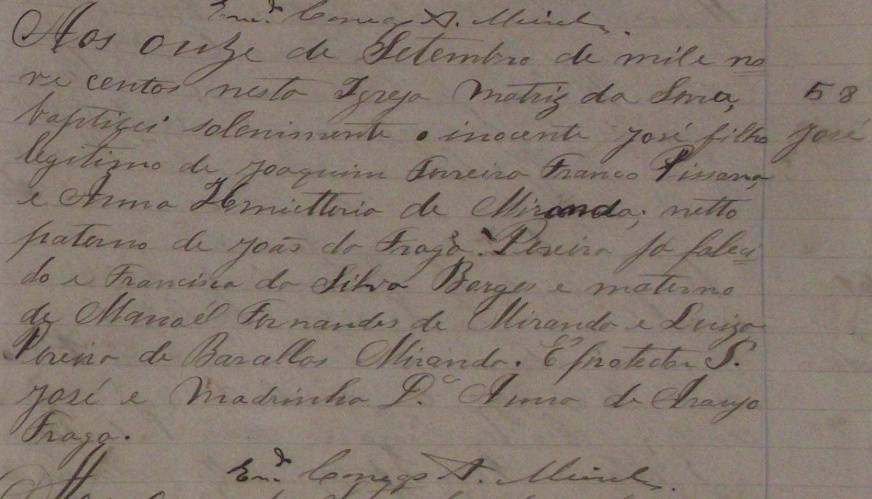 Enc.do Conego A. Meirel.
Aos onze de Setembro de mile no
ve centos nesta Igreja Matriz da
58
baptizei solenimente o inocente José filho
José
legitimo de Joaquim Ferreira Franco Pissarra
e Anna de Miranda; netto
paterno de João da Fraga Pereira ja faleci
do e Francisca da Silva Borges e materno
de Manoel Fernandes de Miranda e Luiza
Pereira de Miranda. É protector S.
José e Madrinha D.a Anna de Araujo
Fraga.
Enc.do Conego A. Meirel.